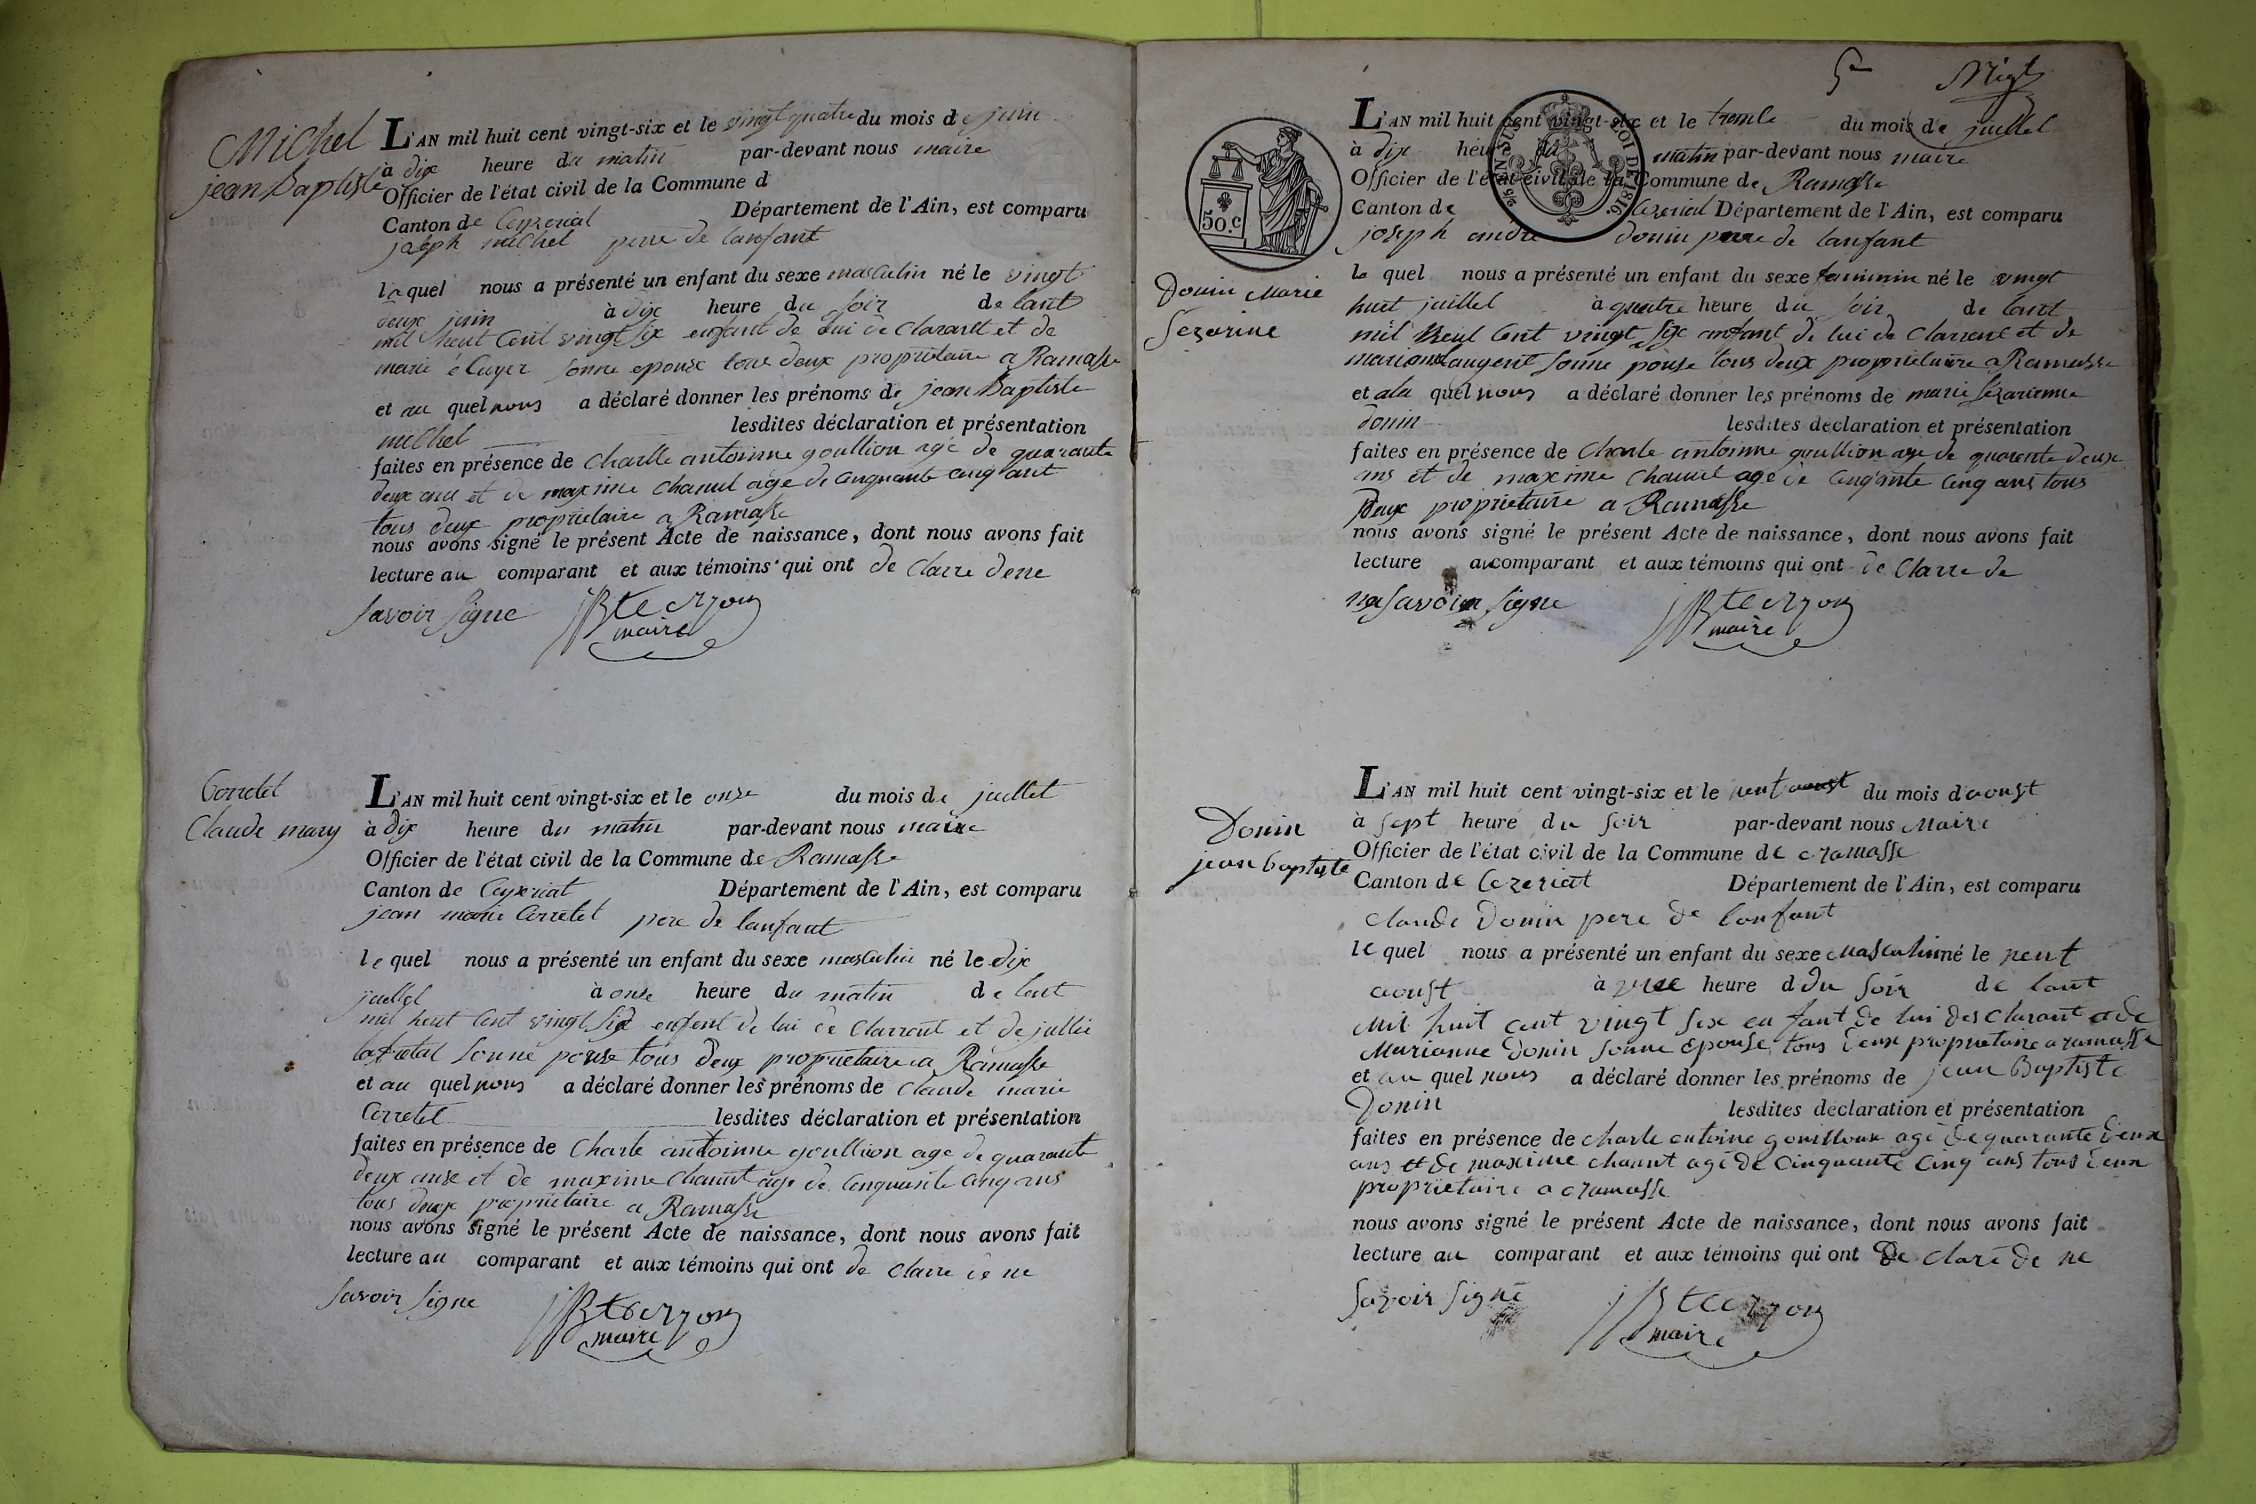 Michel
jean Baptiste
L'AN mil huit cent vingt-six et le vingt quatre du mois de juin
à dix heure du matin par-devant nous maire
Officier de l'état civil de la Commune d
Canton de Ceyzeriat Département de l'Ain, est comparu
joseph michel pere de lanfant
le quel nous a présenté un enfant du sexe masculin né le vingt
deux juin à dix heure du soir de lant
mil heut cent vingt six enfant de lui de clarant et de
marie sonne epouse tous deux proprietaire a Ramasse
et au quel nous a déclaré donner les prénoms de jean Baptiste
michel lesdites déclaration et présentation
faites en présence de Charlle antoinne goullion agé de quarante
deux ans et de maxime chanut agé de cinquante cinq ant
tous deux proprietaire a Ramasse
nous avons signé le présent Acte de naissance, dont nous avons fait
lecture au comparant et aux témoins qui ont de clarre dene
savoir signe JBte
maire
Corretel
Claude mary
L'AN mil huit cent vingt-six et le onze du mois de juillet
à dix heure du matin par-devant nous maire
Officier de l'état civil de la Commune de Ramasse
Canton de Ceyzeriat Département de l'Ain, est comparu
jean marie Corretel pere de lanfant
le quel nous a présenté un enfant du sexe masculin né le dix
juillet à onze heure du matin de lant
mil heut cent vingt six enfent de lui de clarrant et de jullie
sonne pouse tous deux proprietaire a Ramasse
et au quel nous a déclaré donner les prénoms de claude marie
Corretel lesdites déclaration et présentation
faites en présence de Charle antoinne goullion age de quarante
deux anse et de maxime chanut age de cenquante cinq ans
tous deux proprietaire a Ramasse
nous avons signé le présent Acte de naissance, dont nous avons fait
lecture au comparant et aux témoins qui ont de clarre de ne
savoir signe JBte
maire
5e
50.C
LOI DE 1816.
Donin Marie
Sezarine
L'AN mil huit cent vingt-six et le trente du mois de juillet
à dix heure du matin par-devant nous maire
Officier de l'état civil de la Commune de Ramasse
Canton de Cezeriat Département de l'Ain, est comparu
joseph andre donin pere de lanfant
le quel nous a présenté un enfant du sexe feminin né le vingt
huit juillet à quatre heure du soir de lant
mil heut cent vingt six enfant de lui de clarrent et de
sonne pouse tous deux proprietaire a Ramasse
et ala quel nous a déclaré donner les prénoms de marie sezarienne
donin lesdites déclaration et présentation
faites en présence de Charle antoinne goullion age de quarente deux
ans et de maxime chanut age de cinq'ante cinq ans tous
Deux proprietaire a Ramasse
nous avons signé le présent Acte de naissance, dont nous avons fait
lecture au comparant et aux témoins qui ont de clarre de
ne savoir signe JBte
maire
Donin
jean baptiste
L'AN mil huit cent vingt-six et le neuf aoust du mois d aoust
à sept heure du soir par-devant nous Maire
Officier de l'état civil de la Commune de ramasse
Canton de Cezeriat Département de l'Ain, est comparu
claude Donin pere de lenfant
le quel nous a présenté un enfant du sexe Masculin né le neuf
aoust à une heure d du soir de lant
Mil huit cent vingt sex en fant de lui des clarant et de
Marianne Donin sonne Epouse tous deux proprietaire a ramasse
et au quel nous a déclaré donner les prénoms de jean Baptiste
Donin lesdites déclaration et présentation
faites en présence de charle antoine goullioux agé de quarante deux
ans et de maxime chanut agé de cinquante cinq ans tous deux
proprietaire a ramasse
nous avons signé le présent Acte de naissance, dont nous avons fait
lecture au comparant et aux témoins qui ont De claré de ne
savoir signé JBte
maire